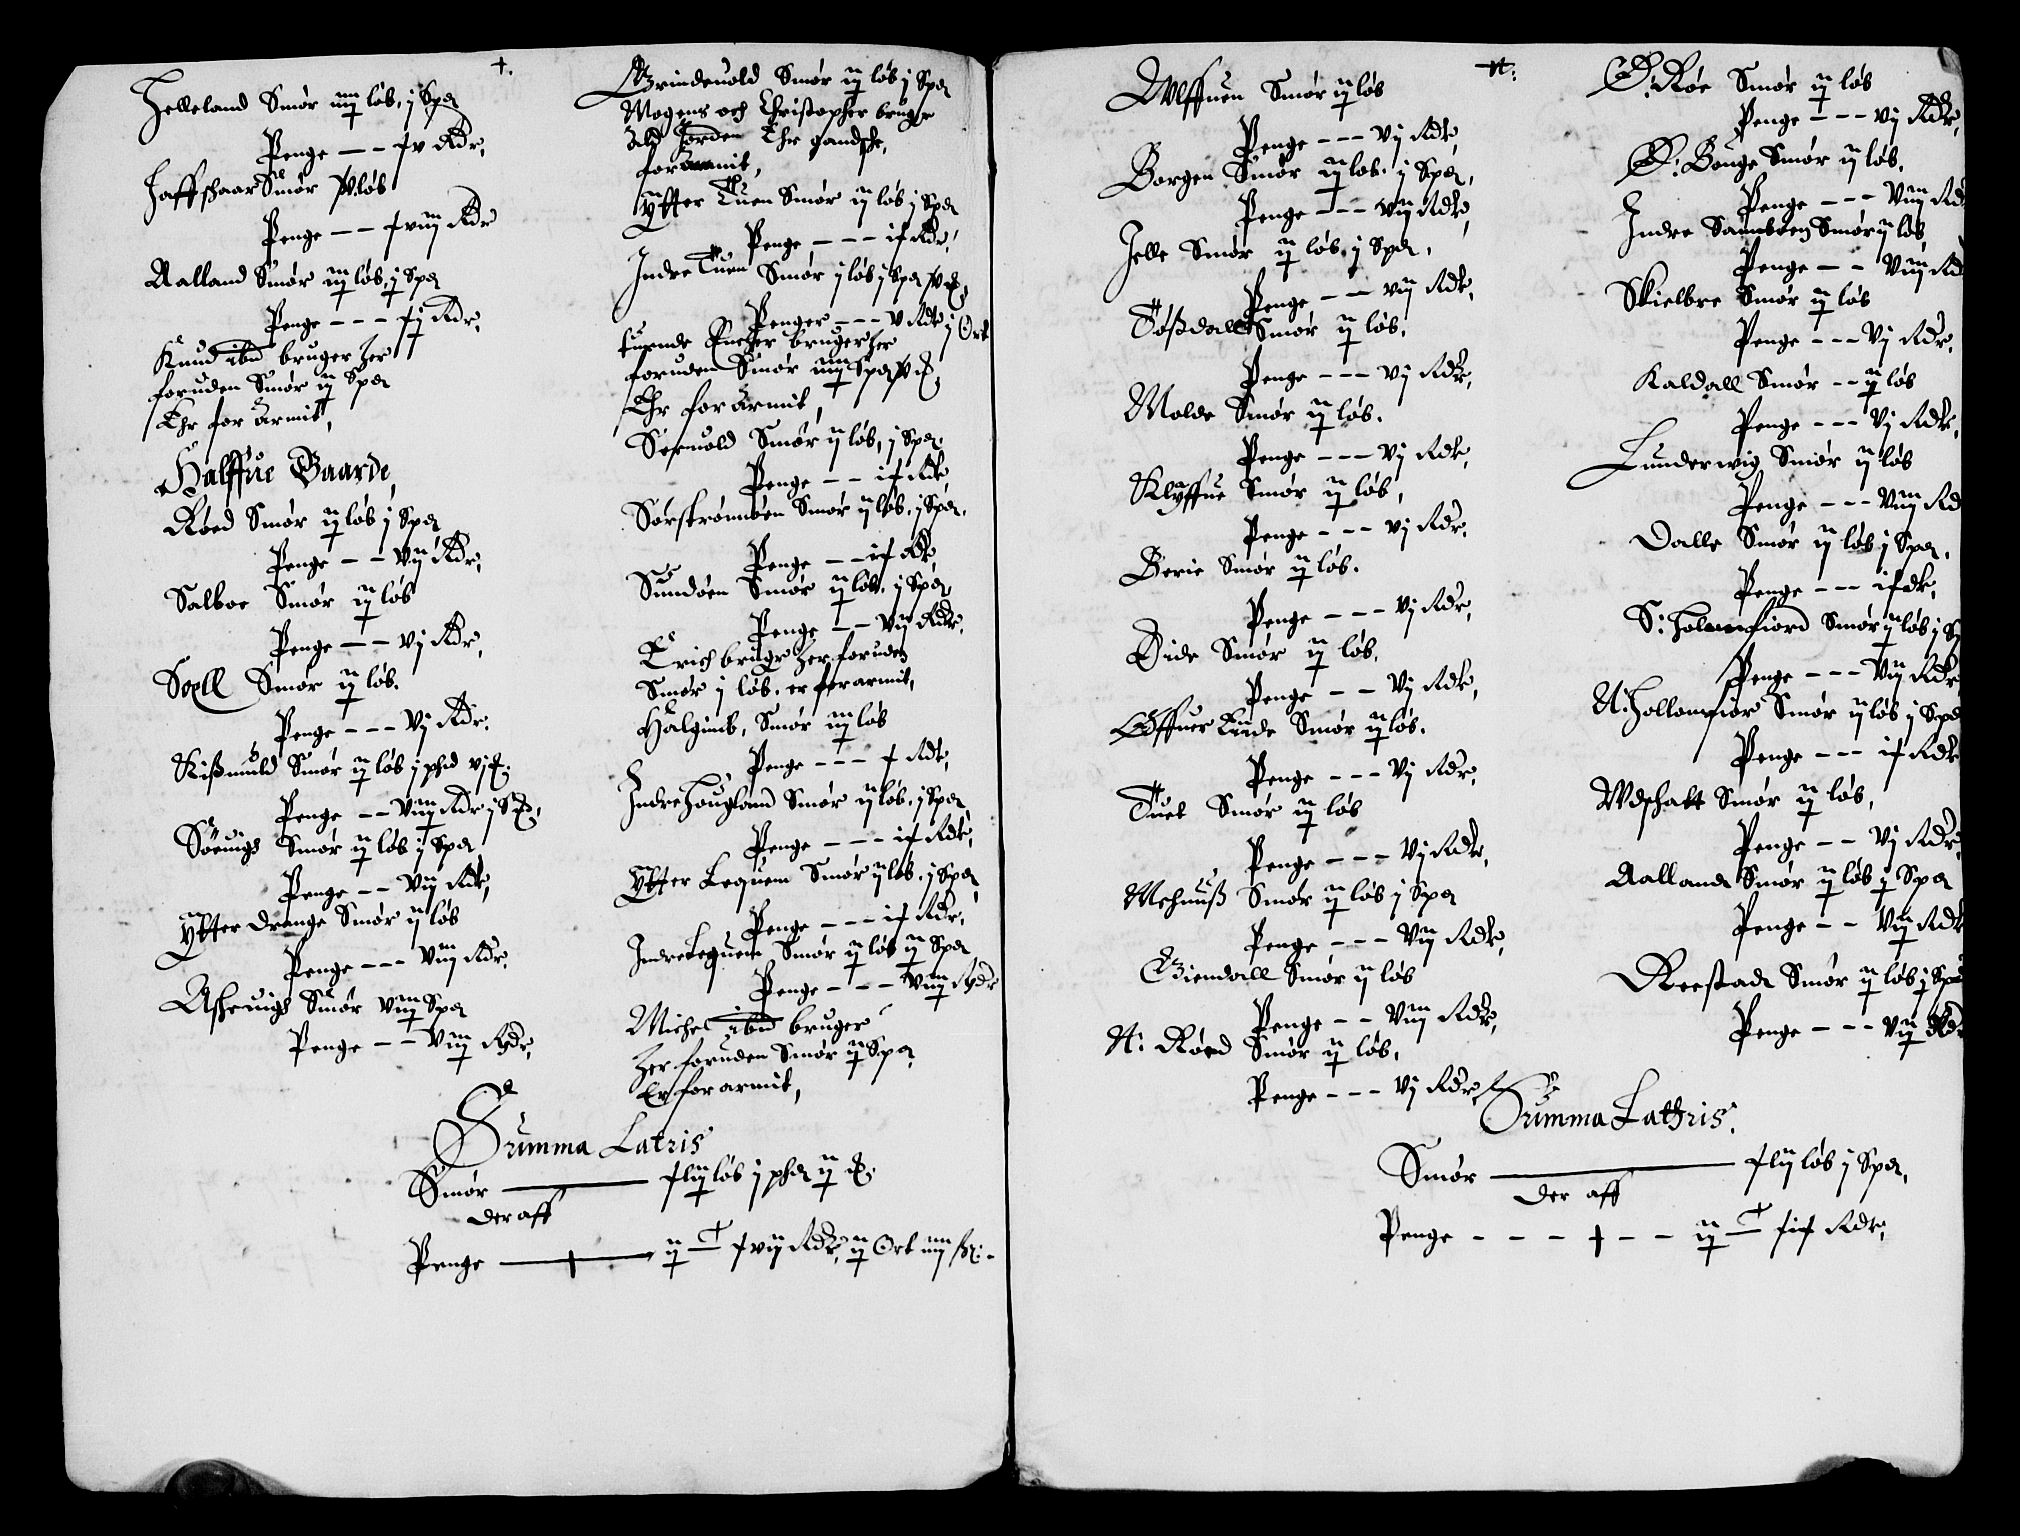 Helleland Smør iiij løb, j Spd
Penge -- xv Rdr,
Haffschaar Smør løb
Penge -- xviij Rdr
Aalland Smør iij løb, j Spd
Penge --- xij Rdr,
Knud ibd bruger her
foruden Smør ij Spd
Ehr for armit,
Halffue Gaarde,
Røed Smør ij løb j Spd
Penge -- vij Rdr,
Salboe Smør ij løb
Penge -- vj Rdr,
Smør ij løb.
Penge --- vj Rdr.
Kißmuld Smør ij løb j pfd vj
Penge -- viij Rdr j
Søeuigs Smør ij løb j Spd
Penge -- vij Rdr,
Ytter Drange Smør ij løb
Penge --- viij Rdr,
Smør viij Spd
Penge -- viij Rdr,
+.
Grindeuold Smør ij løb j Spd
Mogens och Christopher bruger
Jorden Ehr gandsche,
forarmit,
Ytter Tuen Smør ij løb j Spd
Penge --- ix Rdr,
Indre Tuen Smør j løb j Spd
Penger --- v Rdr j Ort
Encher bruger her
foruden Smør iiij Spd
Ehr forarmit,
Smør ij løb, j Spd.
Penge -- ix Rdr,
Sørstrømøen Smør ij løb, j Spd.
Penge -- ix Rdr
Sundøen Smør ij løb, j Spd,
Penge -- vij Rdr.
Erich bruger her foruden
Smør j løb. er forarmit,
Smør iij løb
Penge --- x Rdr,
Indre Hougland Smør ij løb, j Spd
Penge --- ix Rdr,
Ytter Lequem Smør ij løb, j Spd
Penge --- ix Rdr,
Indre Lequem Smør ij løb ij Spd
Penge --- viij Rdr
Michel ibd bruger
her foruden Smør ij Spd
Er forarmit,
Summa Latris
Smør — løb j pfd ij
Der aff
Penge — ij C xvij Rdr, ij Ort iiij ß.
Vlffuen Smør ij løb
Penge --- vj Rdr,
Borgen Smør ij løb. j Spd,
Penge --- vij Rdr,
Helle Smør ij løb, j Spd,
Penge --- vij Rdr,
Tößdall Smør ij løb.
Penge --- vj Rdr,
Molde Smør ij løb.
Penge --- vj Rdr,
Klyffue Smør ij løb,
Penge --- vj Rdr.
Berie Smør ij løb.
Penge --- vj Rdr,
Eide Smør ij løb.
Penge -- vj Rdr,
Smør ij løb.
Penge --- vj Rdr,
Tuet Smør ij løb
Penge --- vj Rdr,
Mehuuß Smør ij løb j Spd
Penge --- vij Rdr,
Giendall Smør ij løb
Penge -- viij Rdr,
N: Røed Smør ij løb,
Penge --- vj Rdr,
Ø: Røe Smør ij løb
Penge --- vj Rdr,
Ø: Bouge Smør ij løb,
Penge --- viij Rd
Indre Smør ij løb
Penge -- viij Rd
Skielbre Smør ij løb
Penge --- vj Rdr,
Kaldall Smør -- ij løb
Penge --- vj Rdr,
Lunderwig Smør ij løb
Penge --- viij Rd
Dalle Smør ij løb j Spd,
Penge --- ix dr,
S: Holumfiord Smør ij løb j Sp
Penge --- vij Rdr
N: Hollomfior Smør ij løb j Spd
Penge --- ix Rdr
Smør ij løb,
Penge -- vj Rdr,
Aalland Smør ij løb j Spd
Penge -- vij Rdr
Reestad Smør ij løb j Spd
Penge --- vij Rdr
Summa Lathris.
Smør — løb j Spd,
Der aff
Penge --- + -- ij C Rdr,